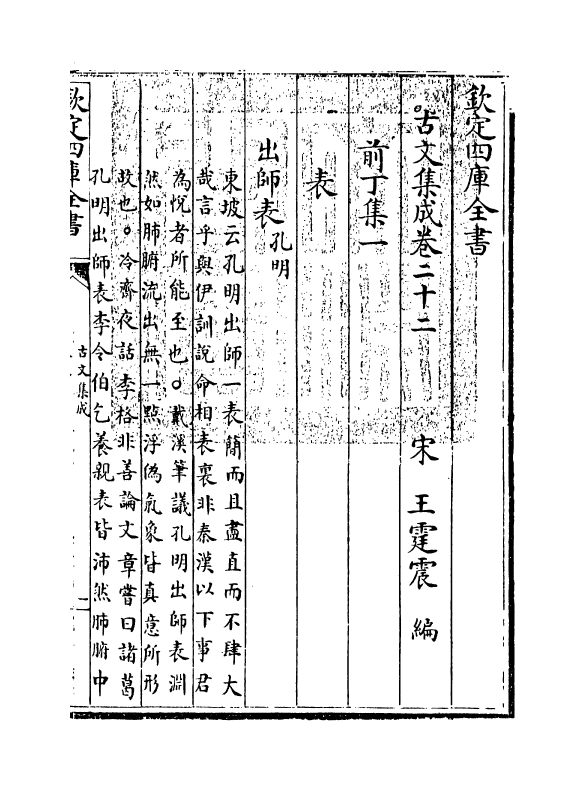 欽定四庫全書
古文集成卷二十二
宋　王霆震　編
前丁集一
表
出師表孔明
東坡云孔明出師一表簡而且盡直而不肆大
哉言乎與伊訓說命相表裏非秦漢以下事君
為悅者所能至也○戴溪筆議孔明出師表淵
然如肺腑流出無一點浮偽氣象皆真意所形
故也○冷齋夜話李格非善論文章嘗曰諸葛
孔明出師表李令伯乞養親表皆沛然肺腑中
欽定四庫全書
古文集成